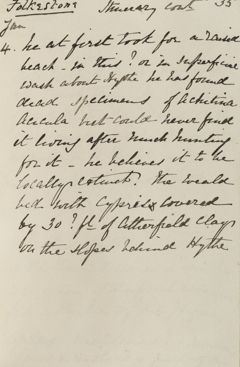 Folkestone Itinerary cont 35
Jan
4. he at first took for a raised
beach - in this? or in superficial
wash about Hythe he has found
dead specimens of Achatina
acicula but could never find
it living after much hunting
for it - he believes it to be
locally extinct? The weald
bed with Cypris covered
by 30? ft of Atherfield Clay
on the slopes behind Hythe